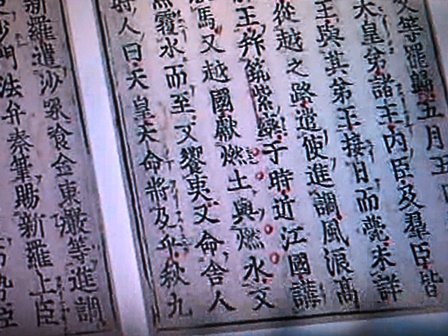 文等罷歸五月五
天皇弟諸王內臣及羣臣皆
王與其弟王接日而薨未詳
從越之路遣使進調風浪高
王拜筑紫率于時近江國講
馬又越國獻燃土與燃水又
魚覆水而至又饗夷又命舍人
時人曰天皇天命將及乎秋九
新羅遣沙㖨飡金東嚴等進調
沙門法弁秦筆賜新羅上臣